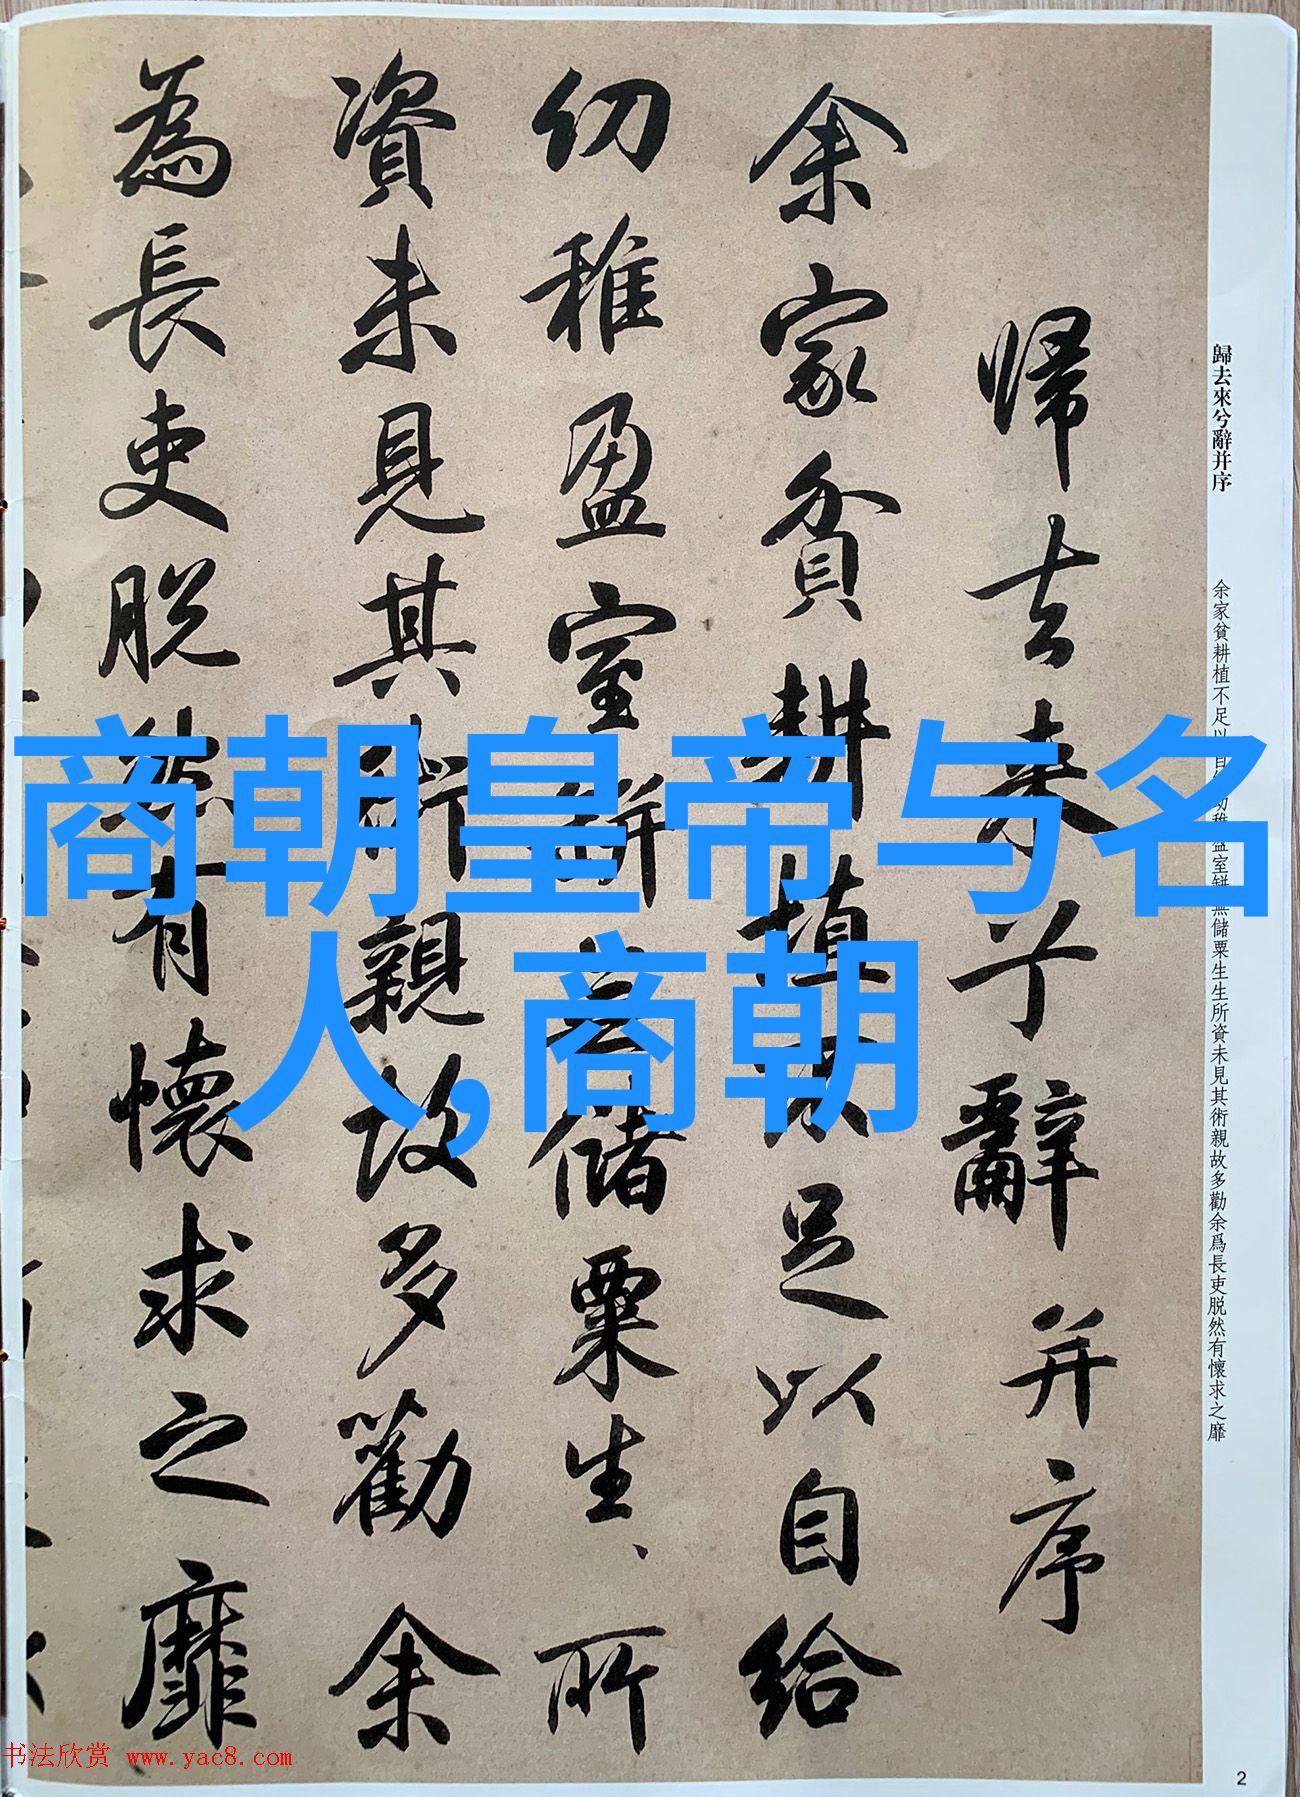 歸去來兮辭并序
余家貧耕植不足以自給幼稚盈室缾無儲粟生生所資未見其術親故多勸余爲長吏脱然有懷求之靡
歸去来兮辭并序
余家貧耕植不足以自給
幼稚盈室缾無儲粟生、所
資未見其術親故多勸余
為長吏脱然有懷求之靡
商朝皇帝与名
人,商朝
书法欣赏 www.yac8.com
2